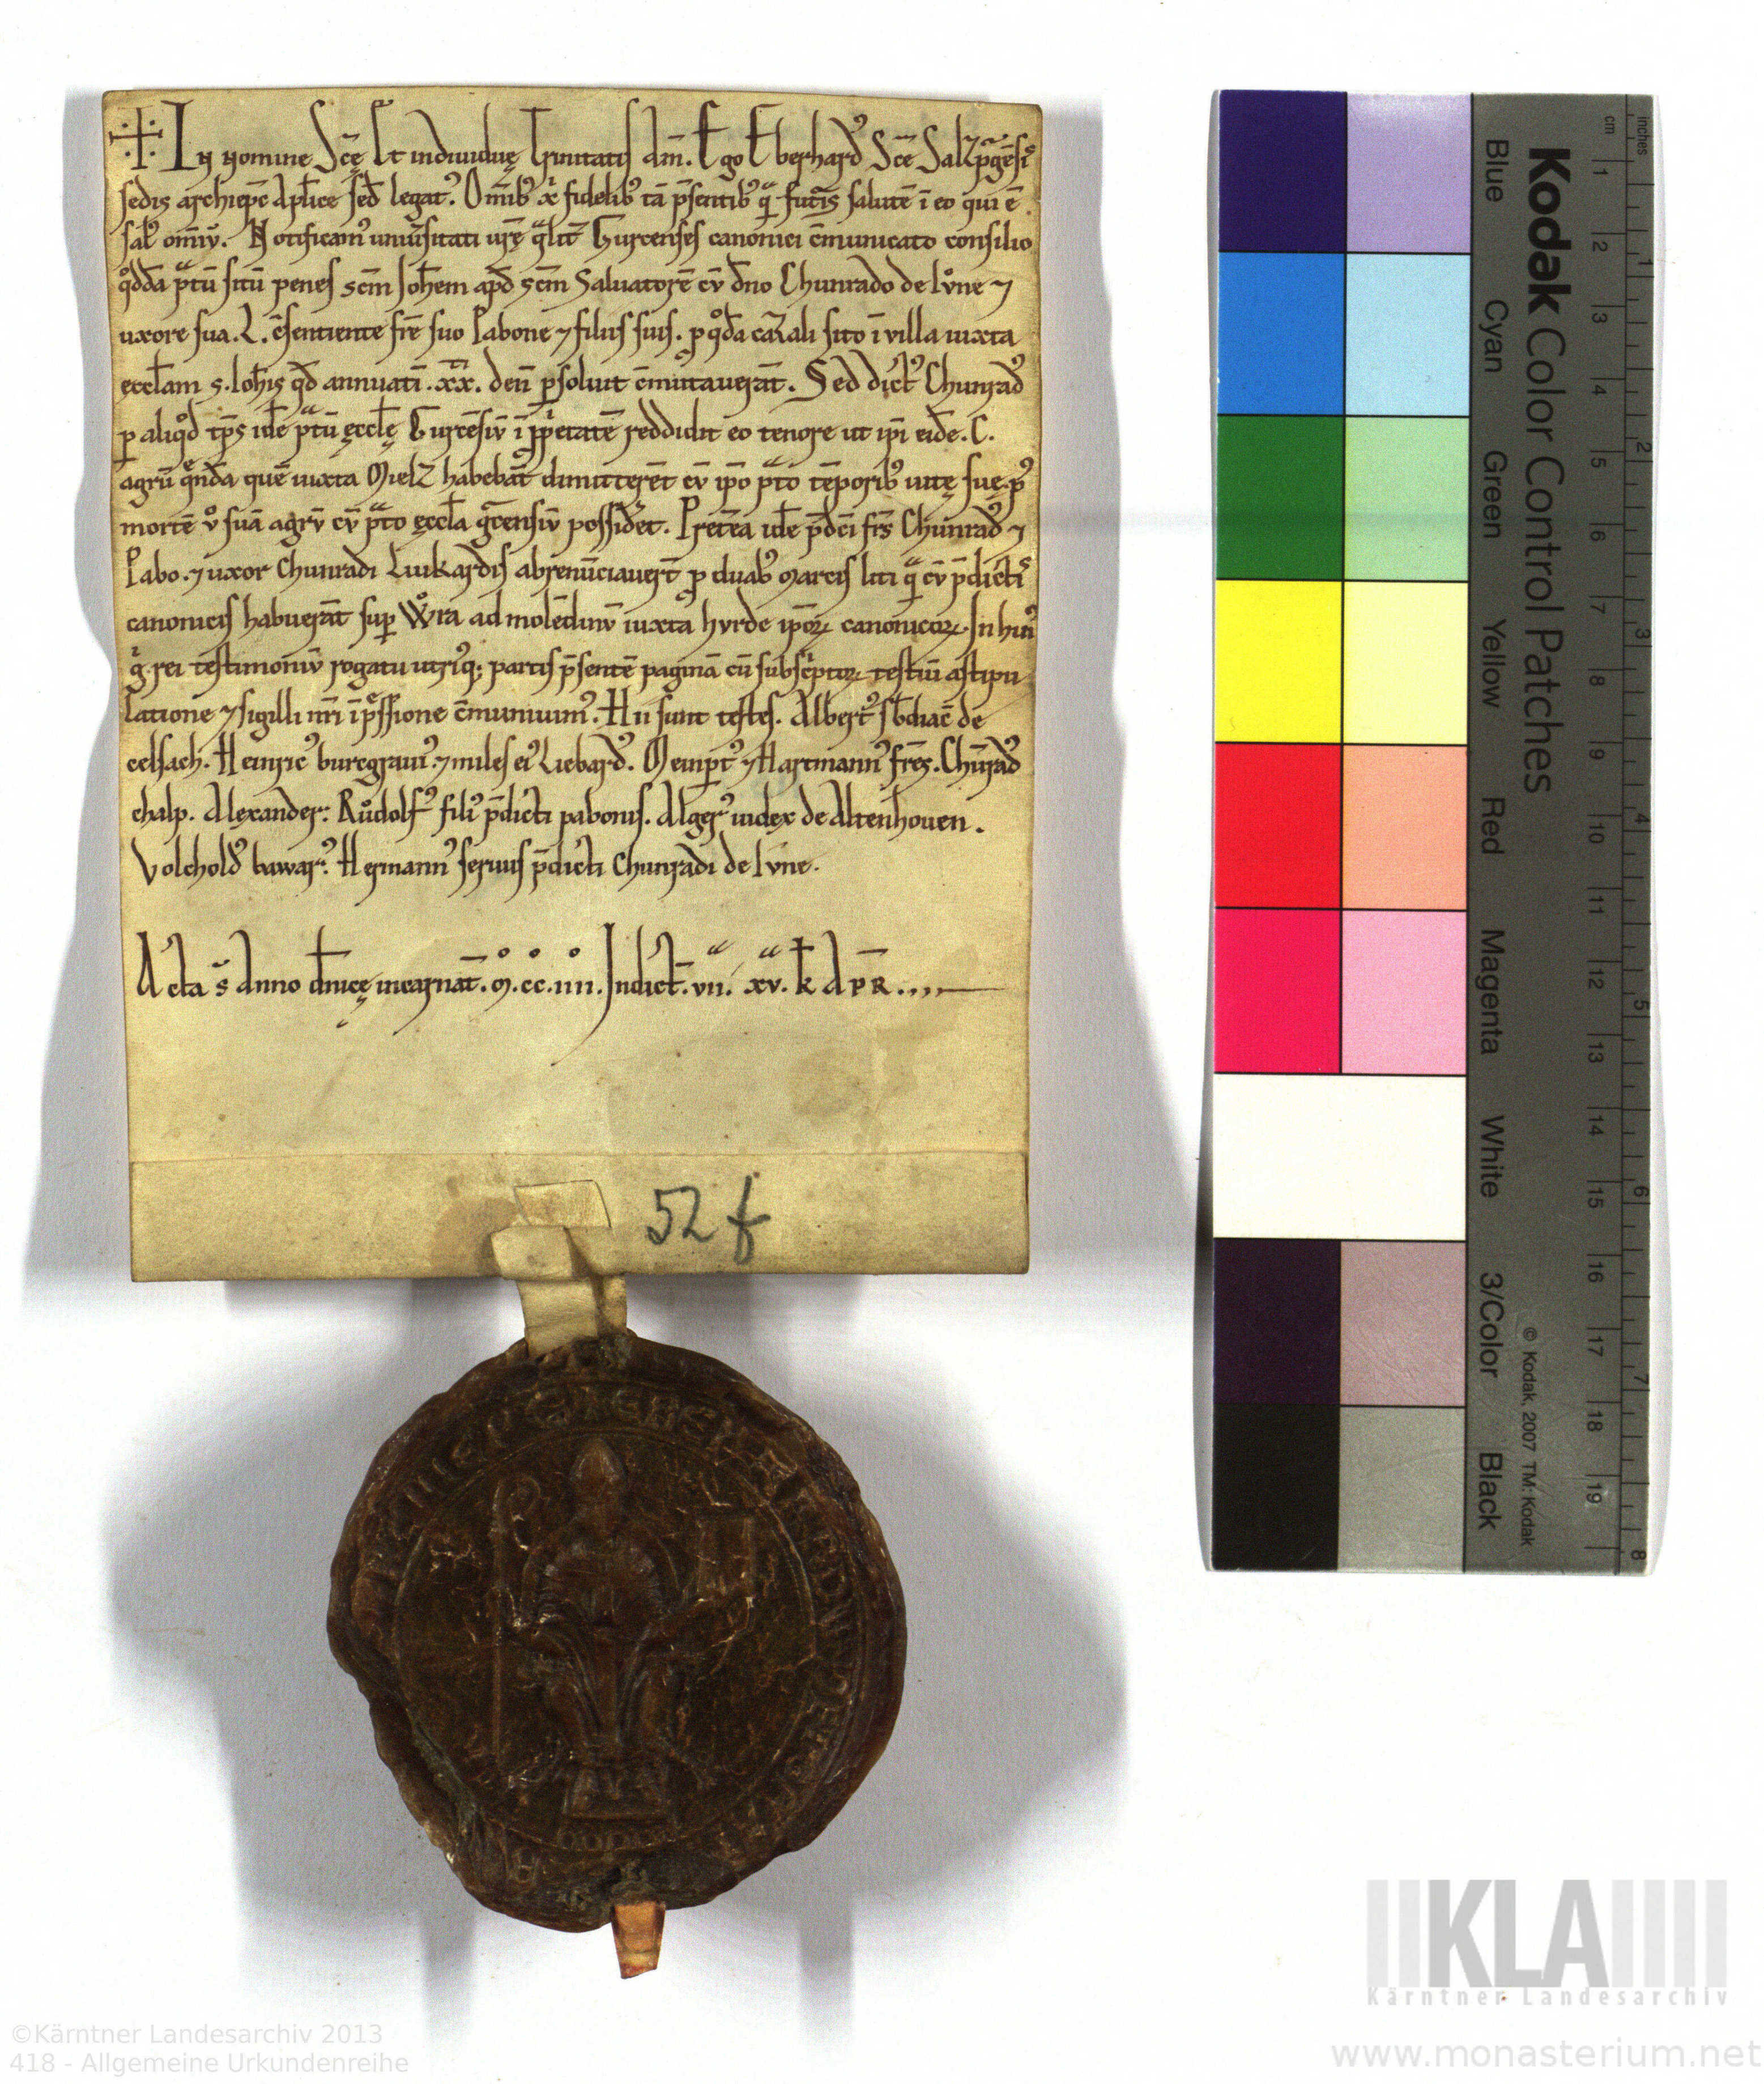 ✝ In nomine Scę Et indiuiduę Trinitatis am̄. Ego Eberhard᾽ Scē Salzpᵃgēsiˢ
sedis archiep̄c Apl̄ice sed̄ legat᾽. Om̄ib᾽ xⁱ fidelib᾽ tā p̄sentib᾽ qᵃ futuris salutē ī eo qui ē
sal᾽ omniū. Notificam᾽ uniu̾sitati ur̄ę qᵃlit̾ Gurcenses canonici c̄municato consilio
qᵒdda pᵃtū sitū penes sc̄m Joh̄em apd̄ sc̄m Saluatorē cv̄ dn̄o Chunrado de Ivͦne ⁊
uxore sua. L. c̄sentiente fr̄e suo Pabone ⁊ filiis suis. p qᵒda casali sito ī villa iuxta
ecclām s. Ioh̄is qd̄ annuatī .xx. den̄ p̱soluit c̄mutauerāt. Sed dict᾽ Chunrad᾽
p aliqᵒd tp̄s id̄e pᵃtū ęccl̄ę Gurcēsiv̄ ī pⁱpetatē reddidit eo tenore ut ip̄i eid̄e. C.
agrū qēnda quē iuxta Mielz habebāt dimitterēt cv̄ ip̄o pᵃto tēporib᾽ uitę suę. p᾽
mortē vͦ suā agrv̄ cv̄ pᵃto ęccl̄a gᵃcensiv̄ possideret. Pretēa id̄e p̄dc̄i fr̄s Chunrad᾽ ⁊
Pabo. ⁊ uxor Chunradi Liukardis abrenūciauert̄ p duab᾽ marcis liti qᵃ cv̄ p̄dictiˢ
canonicis habuerāt sup̱ Wͦra ad molēdinv̄ iuxta hvrde ip̄oꝝ canonicoꝝ. In hui᾽
gⁱ. rei testimoniv̄ rogatu utriusq; partis p̄sentē paginā cū subscⁱptoꝝ testiū astipu
latione ⁊ sigilli nr̄i īp̄ssione c̄muniuim᾽. Hii sunt testes. Albert᾽ sb̄diac̄ de
celsach. Heinric᾽ burcgraui᾽. ⁊ miles ei᾽ Liebard᾽. Meinp̱t᾽ ⁊ Hartmann᾽ fr̄es. Chūrad᾽
chalp. Alexander. Rͦudolf᾽ fili᾽ p̄dicti pabonis. Alger᾽ iudex de Altenhouen.
Volchold᾽ bawar᾽. Hermann᾽ seruus p̄dicti Chunradi de Ivne.
Acta s̄ Anno dn̄icę incarnat̄. M̊. cc̊. iiii̊. Indict̄. vii. xv. k̄ Apr̄.
52 f
Kodak Color Control Patches
Blue Cyan Green Yellow Red Magenta White 3/Color Black
© Kodak, 2007 TM: Kodak
inches 1 2 3 4 5 6 7 8
cm 1 2 3 4 5 6 7 8 9 10 11 12 13 14 15 16 17 18 19
KLA
Kärntner Landesarchiv
©Kärntner Landesarchiv 2013
418 - Allgemeine Urkundenreihe
www.monasterium.net